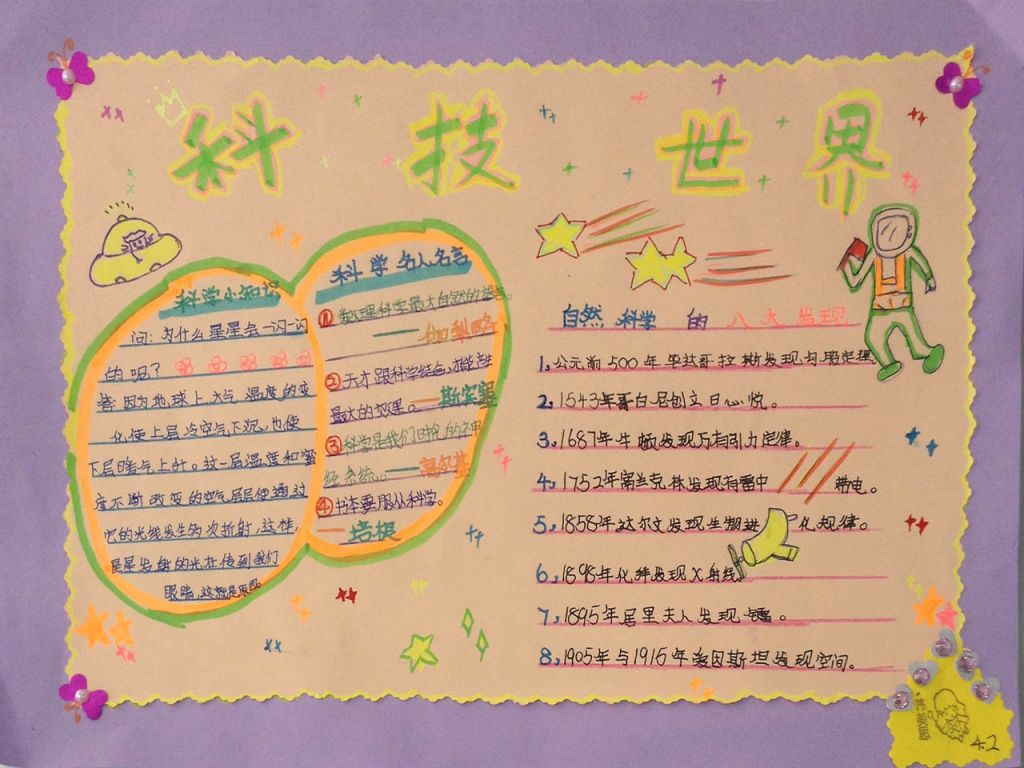 科技世界
科学小知识
问：为什么星星会一闪一闪
的呢？
答：因为地球上大气温度的变
化使上层冷空气下沉，也使
下层暖气上升。这一层温度和密
度不断改变的空气层层使通过
它的光线发生多次折射，这样，
星星发射的光在传到我们
眼睛，这就是原因
科学名人名言
①数理科学最大自然的语言。
——伽利略
②天才跟科学结合，才能产生
最大的效果。—斯宾塞
③科学是我们时代的神
经系统。——高尔基
④书本要服从科学。
—培根
自然科学的八大发现
1.公元前500年毕达哥拉斯发现勾股定理
2.1543年哥白尼创立日心悦。
3.1687年牛顿发现万有引力定律。
4.1752年富兰克林发现有雷中带电。
5.1858年达尔文发现生物进化规律。
6.1898年伦琴发现X射线
7.1895年居里夫人发现镭。
8.1905年与1915年爱因斯坦发现空间。
美思
4.2